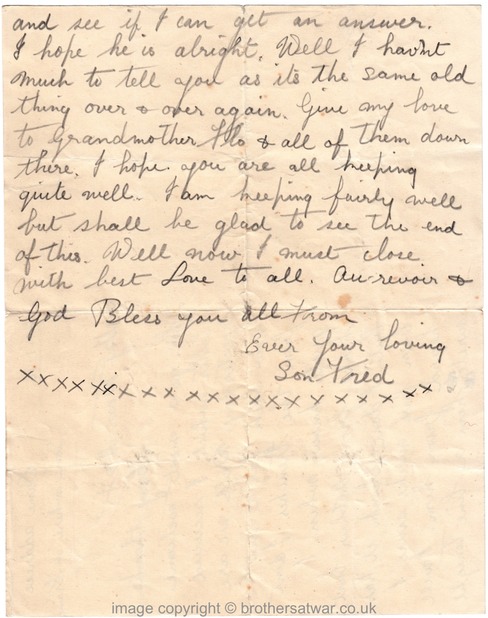 and see if I can get an answer.
I hope he is alright. Well I hav'nt
much to tell you as its the same old
thing over & over again. Give my love
to Grandmother Flo & all of them down
there. I hope you are all keeping
quite well. I am keeping fairly well
but shall be glad to see the end
of this. Well now I must close
with best Love to all. Au-revoir &
God Bless you all From
Ever Your loving
Son Fred
x x x x x x x x x x x x x x x x x x x x x x x
image copyright © brothersatwar.co.uk